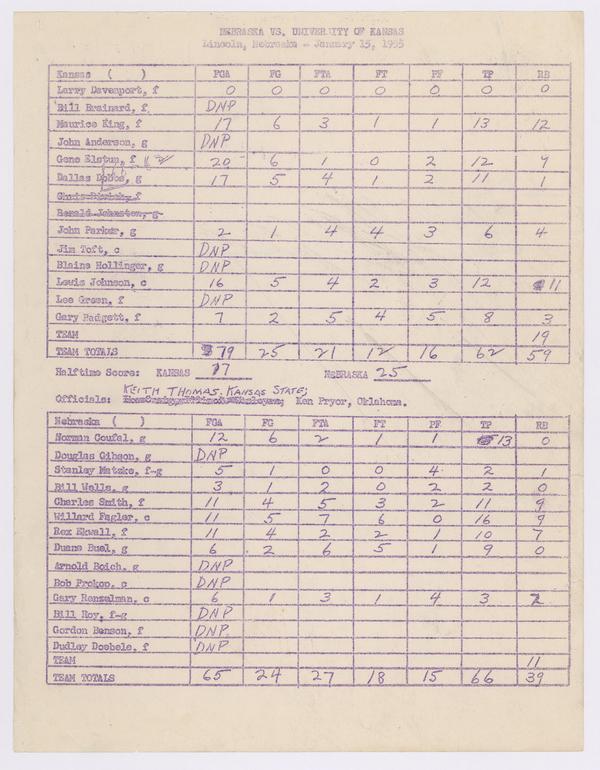 NEBRASKA VS. UNIVERSITY OF KANSAS
Lincoln, Nebraska - January 15, 1955
Kansas ( ) FGA FG FTA FT PF TP RB
Larry Davenport, f 0 0 0 0 0 0 0
Bill Brainard, f DNP
Maurice King, f 17 6 3 1 1 13 12
John Anderson, g DNP
Gene Elstun, f 20 6 1 0 2 12 9
Dallas Dobbs, g 17 5 4 1 2 11 1
Ronald Johnston, g
John Parker, g 2 1 4 4 3 6 4
Jim Toft, c DNP
Blaine Hollinger, g DNP
Lewis Johnson, c 16 5 4 2 3 12 11
Lee Green, f DNP
Gary Padgett, f 7 2 5 4 5 8 3
TEAM 19
TEAM TOTALS 79 25 21 12 16 62 59
Halftime Score: KANSAS 17 NEBRASKA 25
KEITH THOMAS, KANSAS STATE;
Officials: Ken Pryor, Oklahoma.
Nebraska ( ) FGA FG FTA FT PF TP RB
Norman Coufal, g 12 6 2 1 1 13 0
Douglas Gibson, g DNP
Stanley Matzke, f-g 5 1 0 0 4 2 1
Bill Wells, g 3 1 2 0 2 2 0
Charles Smith, f 11 4 5 3 2 11 9
Willard Fagler, c 11 5 7 6 0 16 9
Rex Ekwall, f 11 4 2 2 1 10 7
Duane Buel, g 6 2 6 5 1 9 0
Arnold Boich, g DNP
Bob Prokop, c DNP
Gary Renzelman, c 6 1 3 1 4 3 2
Bill Roy, f-g DNP
Gordon Benson, f DNP
Dudley Doebele, f DNP
TEAM 11
TEAM TOTALS 65 24 27 18 15 66 39